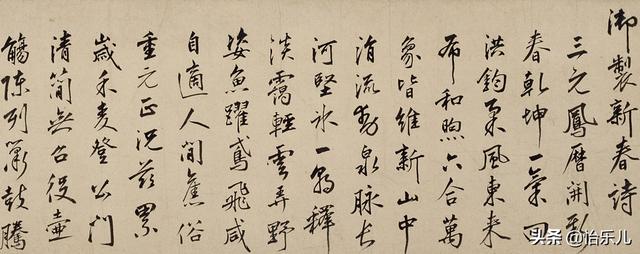 御製新春詩
三元鳳曆開
春乾坤一氣回
洪鈞柔風東来
布和煦六合萬
象皆維新山中
涓流動泉脉长
河堅冰一朝釋
淡靄輕雲弄野
姿魚躍鳶飛咸
自適人間舊俗
重元正況茲累
歲禾麥登公門
清簡無召役壺
觴陳列簫鼓騰
头条 @怡乐儿